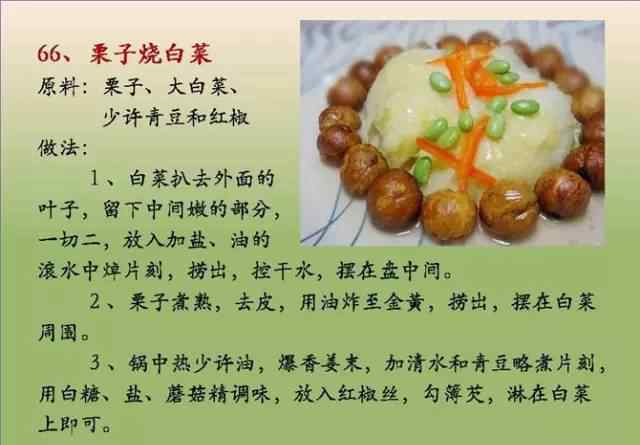 66、栗子烧白菜
原料：栗子、大白菜、
少许青豆和红椒
做法：
1、白菜扒去外面的
叶子，留下中间嫩的部分，
一切二，放入加盐、油的
滚水中焯片刻，捞出，控干水，摆在盘中间。
2、栗子煮熟，去皮，用油炸至金黄，捞出，摆在白菜
周围。
3、锅中热少许油，爆香姜末，加清水和青豆略煮片刻，
用白糖、盐、蘑菇精调味，放入红椒丝，勾薄芡，淋在白菜
上即可。